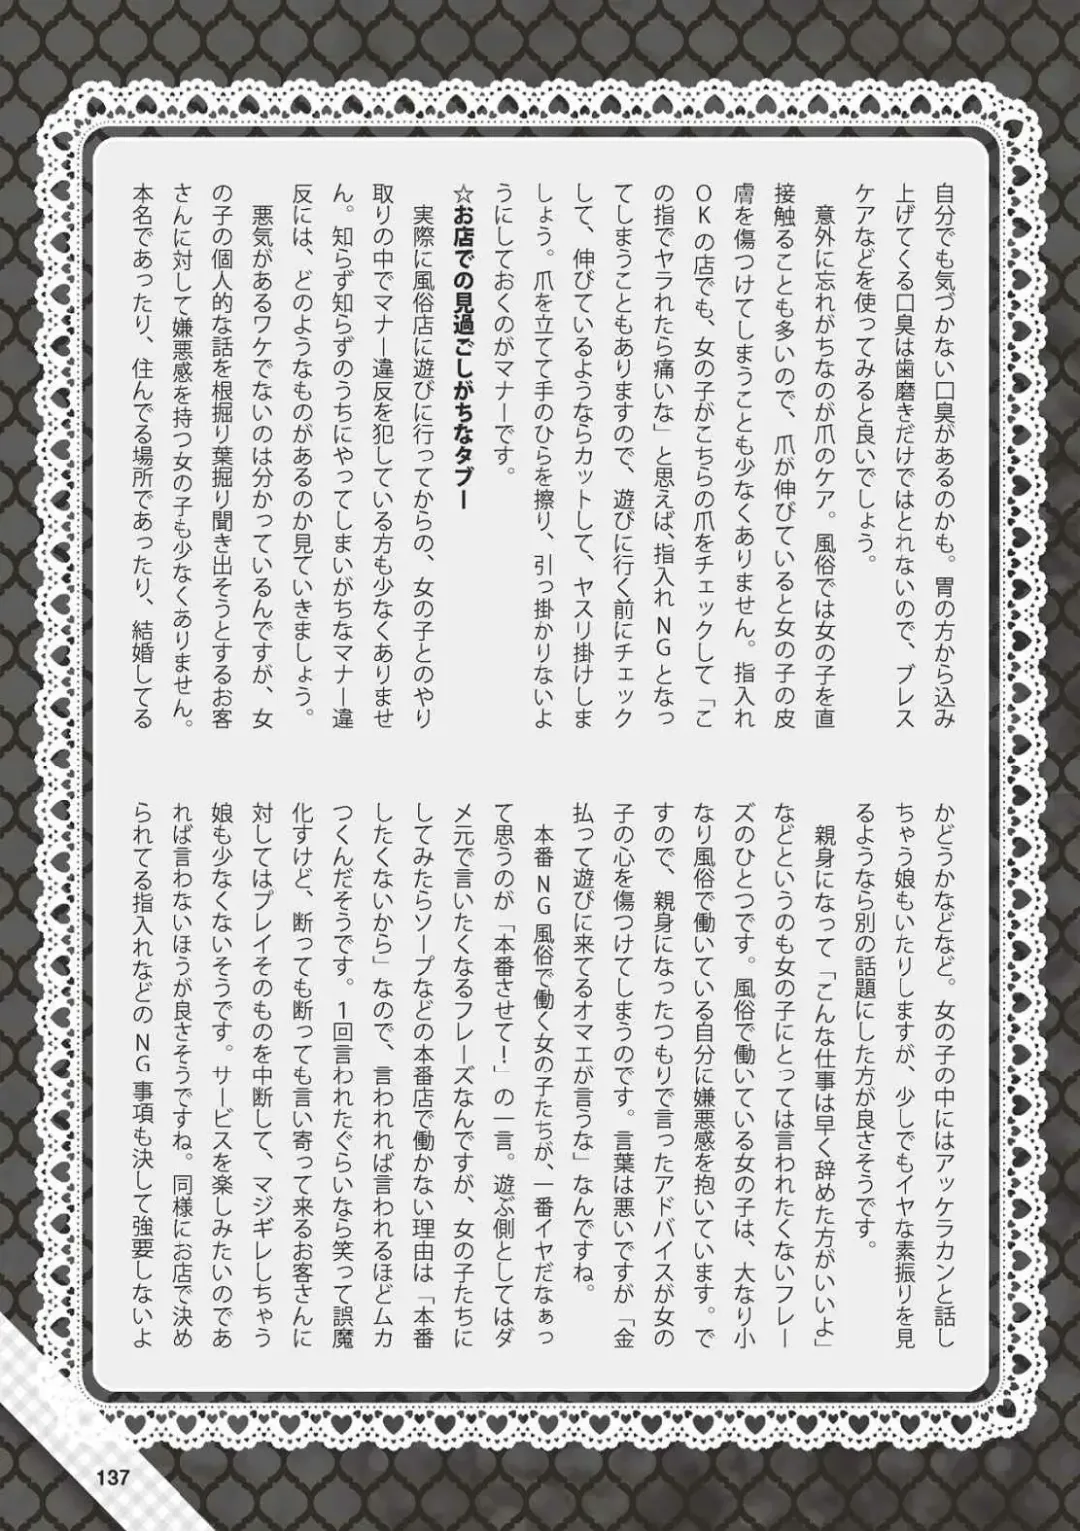 自分でも気づかない口臭があるのかも。胃の方から込み
上げてくる口臭は歯磨きだけではとれないので、ブレス
ケアなどを使ってみると良いでしょう。
意外に忘れがちなのが爪のケア。風俗では女の子を直
接触ることも多いので、爪が伸びていると女の子の皮
膚を傷つけてしまうことも少なくありません。指入れ
OKの店でも、女の子がこちらの爪をチェックして「こ
の指でヤラれたら痛いな」と思えば、指入れNGとなっ
てしまうこともありますので、遊びに行く前にチェック
して、伸びているようならカットして、ヤスリ掛けしま
しょう。爪を立てて手のひらを擦り、引っ掛かりないよ
うにしておくのがマナーです。
☆お店での見過ごしがちなタブー
実際に風俗店に遊びに行ってからの、女の子とのやり
取りの中でマナー違反を犯している方も少なくありませ
ん。知らず知らずのうちにやってしまいがちなマナー違
反には、どのようなものがあるのか見ていきましょう。
悪気があるワケでないのは分かっているんですが、女
の子の個人的な話を根掘り葉掘り聞き出そうとするお客
さんに対して嫌悪感を持つ女の子も少なくありません。
本名であったり、住んでる場所であったり、結婚してる
かどうかなどなど。女の子の中にはアッケラカンと話し
ちゃう娘もいたりしますが、少しでもイヤな素振りを見
るようなら別の話題にした方が良さそうです。
親身になって「こんな仕事は早く辞めた方がいいよ」
などというのも女の子にとっては言われたくないフレー
ズのひとつです。風俗で働いている女の子は、大なり小
なり風俗で働いている自分に嫌悪感を抱いています。で
すので、親身になったつもりで言ったアドバイスが女の
子の心を傷つけてしまうのです。言葉は悪いですが「金
払って遊びに来てるオマエが言うな」なんですね。
本番NG風俗で働く女の子たちが、一番イヤだなぁっ
て思うのが「本番させて!」の一言。遊ぶ側としてはダ
メ元で言いたくなるフレーズなんですが、女の子たちに
してみたらソープなどの本番店で働かない理由は「本番
したくないから」なので、言われれば言われるほどムカ
つくんだそうです。1回言われたぐらいなら笑って誤魔
化すけど、断っても断っても言い寄って来るお客さんに
対してはプレイそのものを中断して、マジギレしちゃう
娘も少なくないそうです。サービスを楽しみたいのであ
れば言わないほうが良さそうですね。同様にお店で決め
られてる指入れなどのNG事項も決して強要しないよ
137